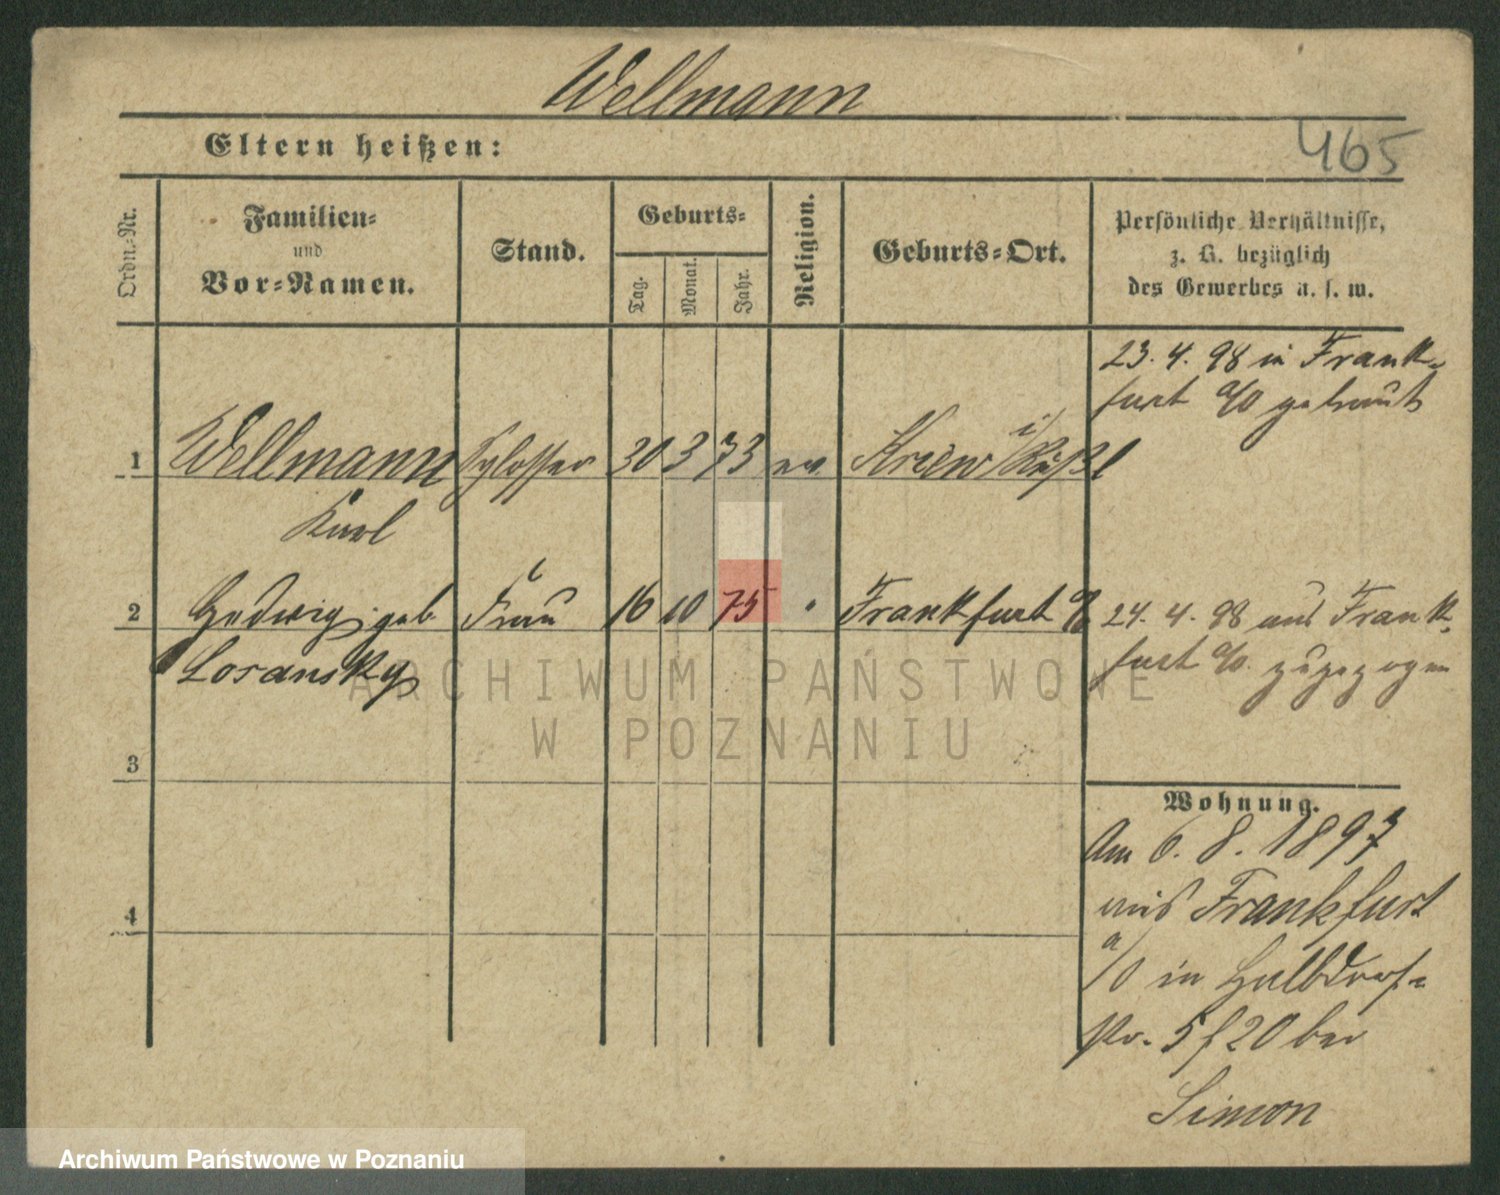 Wellmann
Eltern heißen:
465
Ordn.-Nr.
Familien-
und
Vor-Namen.
Stand.
Geburts-
Tag.
Monat.
Jahr.
Religion.
Geburts-Ort.
Persönliche Verhältnisse,
z. B. bezüglich
des Gewerbes u. s. w.
23. 4. 98 in Frank-
furt a/O getraut
1 Wellmann Schlosser 30 3 73 ev Kiew i/Rußl
Karl
2 Hedwig geb. Frau 16 10 75 " Frankfurt a/O
Losansky
24. 4. 98 aus Frank-
furt a/O. zugezogen
3
Wohnung.
Am 6. 8. 1897
aus Frankfurt
a/O in Halbdorf-
str. 5 f 20 bei
Simon
4
ARCHIWUM PAŃSTWOWE
W POZNANIU
Archiwum Państwowe w Poznaniu